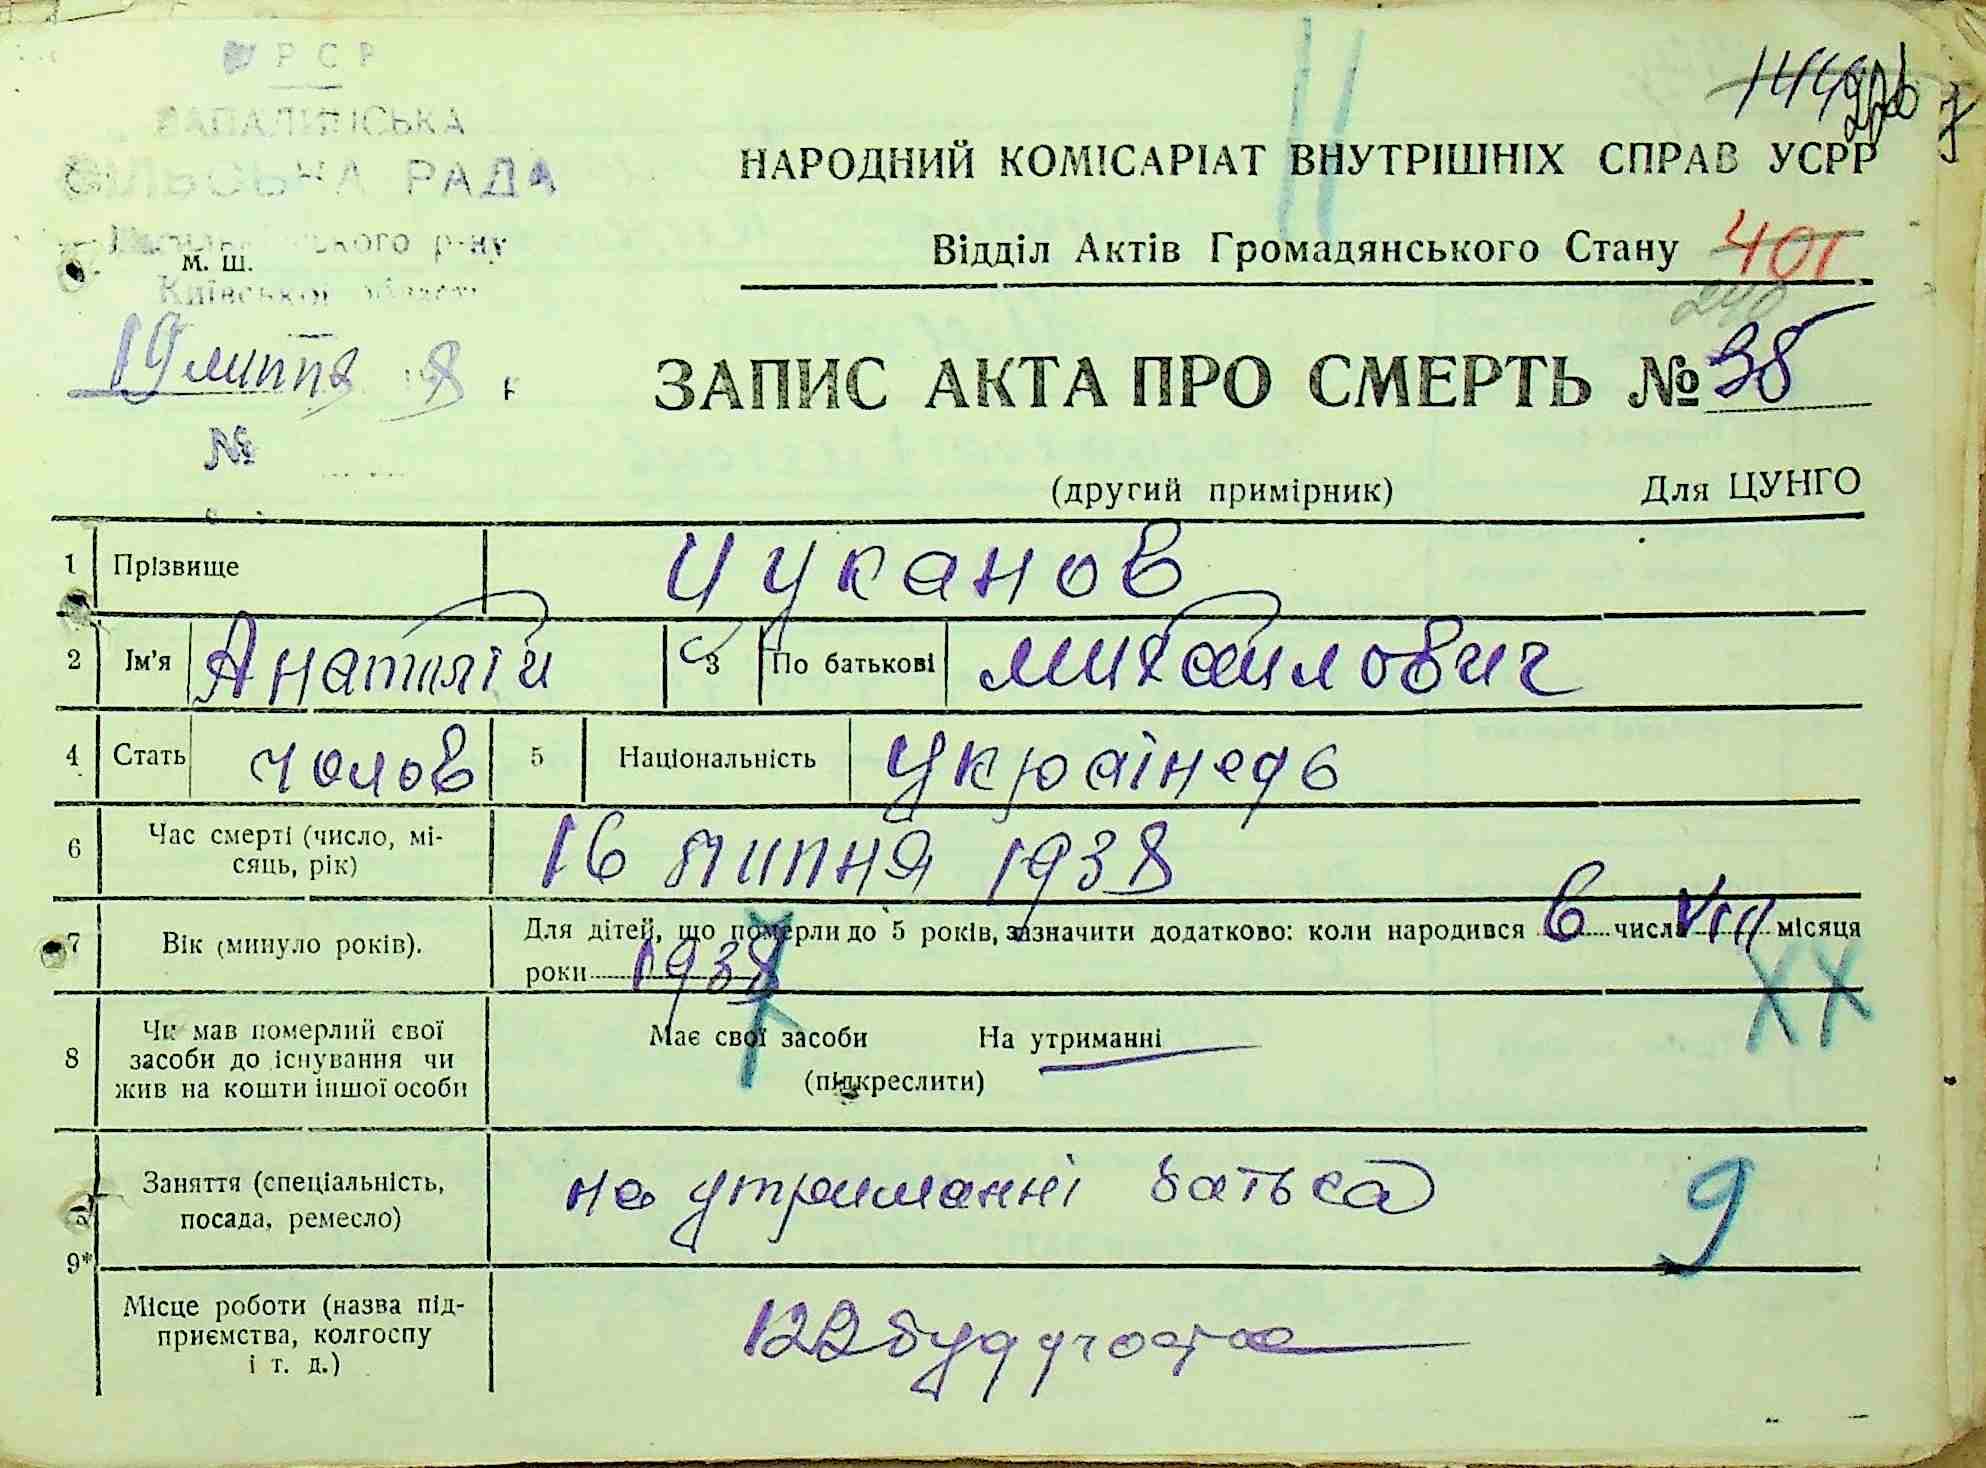 УРСР
СІЛЬСЬКА РАДА
Київської області
м. ш.
19 липня 1938 р
№
НАРОДНИЙ КОМІСАРІАТ ВНУТРІШНІХ СПРАВ УСРР
Відділ Актів Громадянського Стану 401
240
ЗАПИС АКТА ПРО СМЕРТЬ № 38
(другий примірник) Для ЦУНГО
1 Прізвище Цуканов
2 Ім'я Анатолій 3 По батькові Михайлович
4 Стать чолов 5 Національність українець
6 Час смерті (число, мі-
сяць, рік) 16 липня 1938
7 Вік (минуло років). Для дітей, що померли до 5 років, зазначити додатково: коли народився 6 числа VIII місяця
роки 1938
8 Чи мав померлий свої
засоби до існування чи
жив на кошти іншої особи
Має свої засоби На утриманні
(підкреслити)
XX
9* Заняття (спеціальність,
посада, ремесло) на утриманні батька 9
Місце роботи (назва під-
приємства, колгоспу
і т. д.) 122 буд